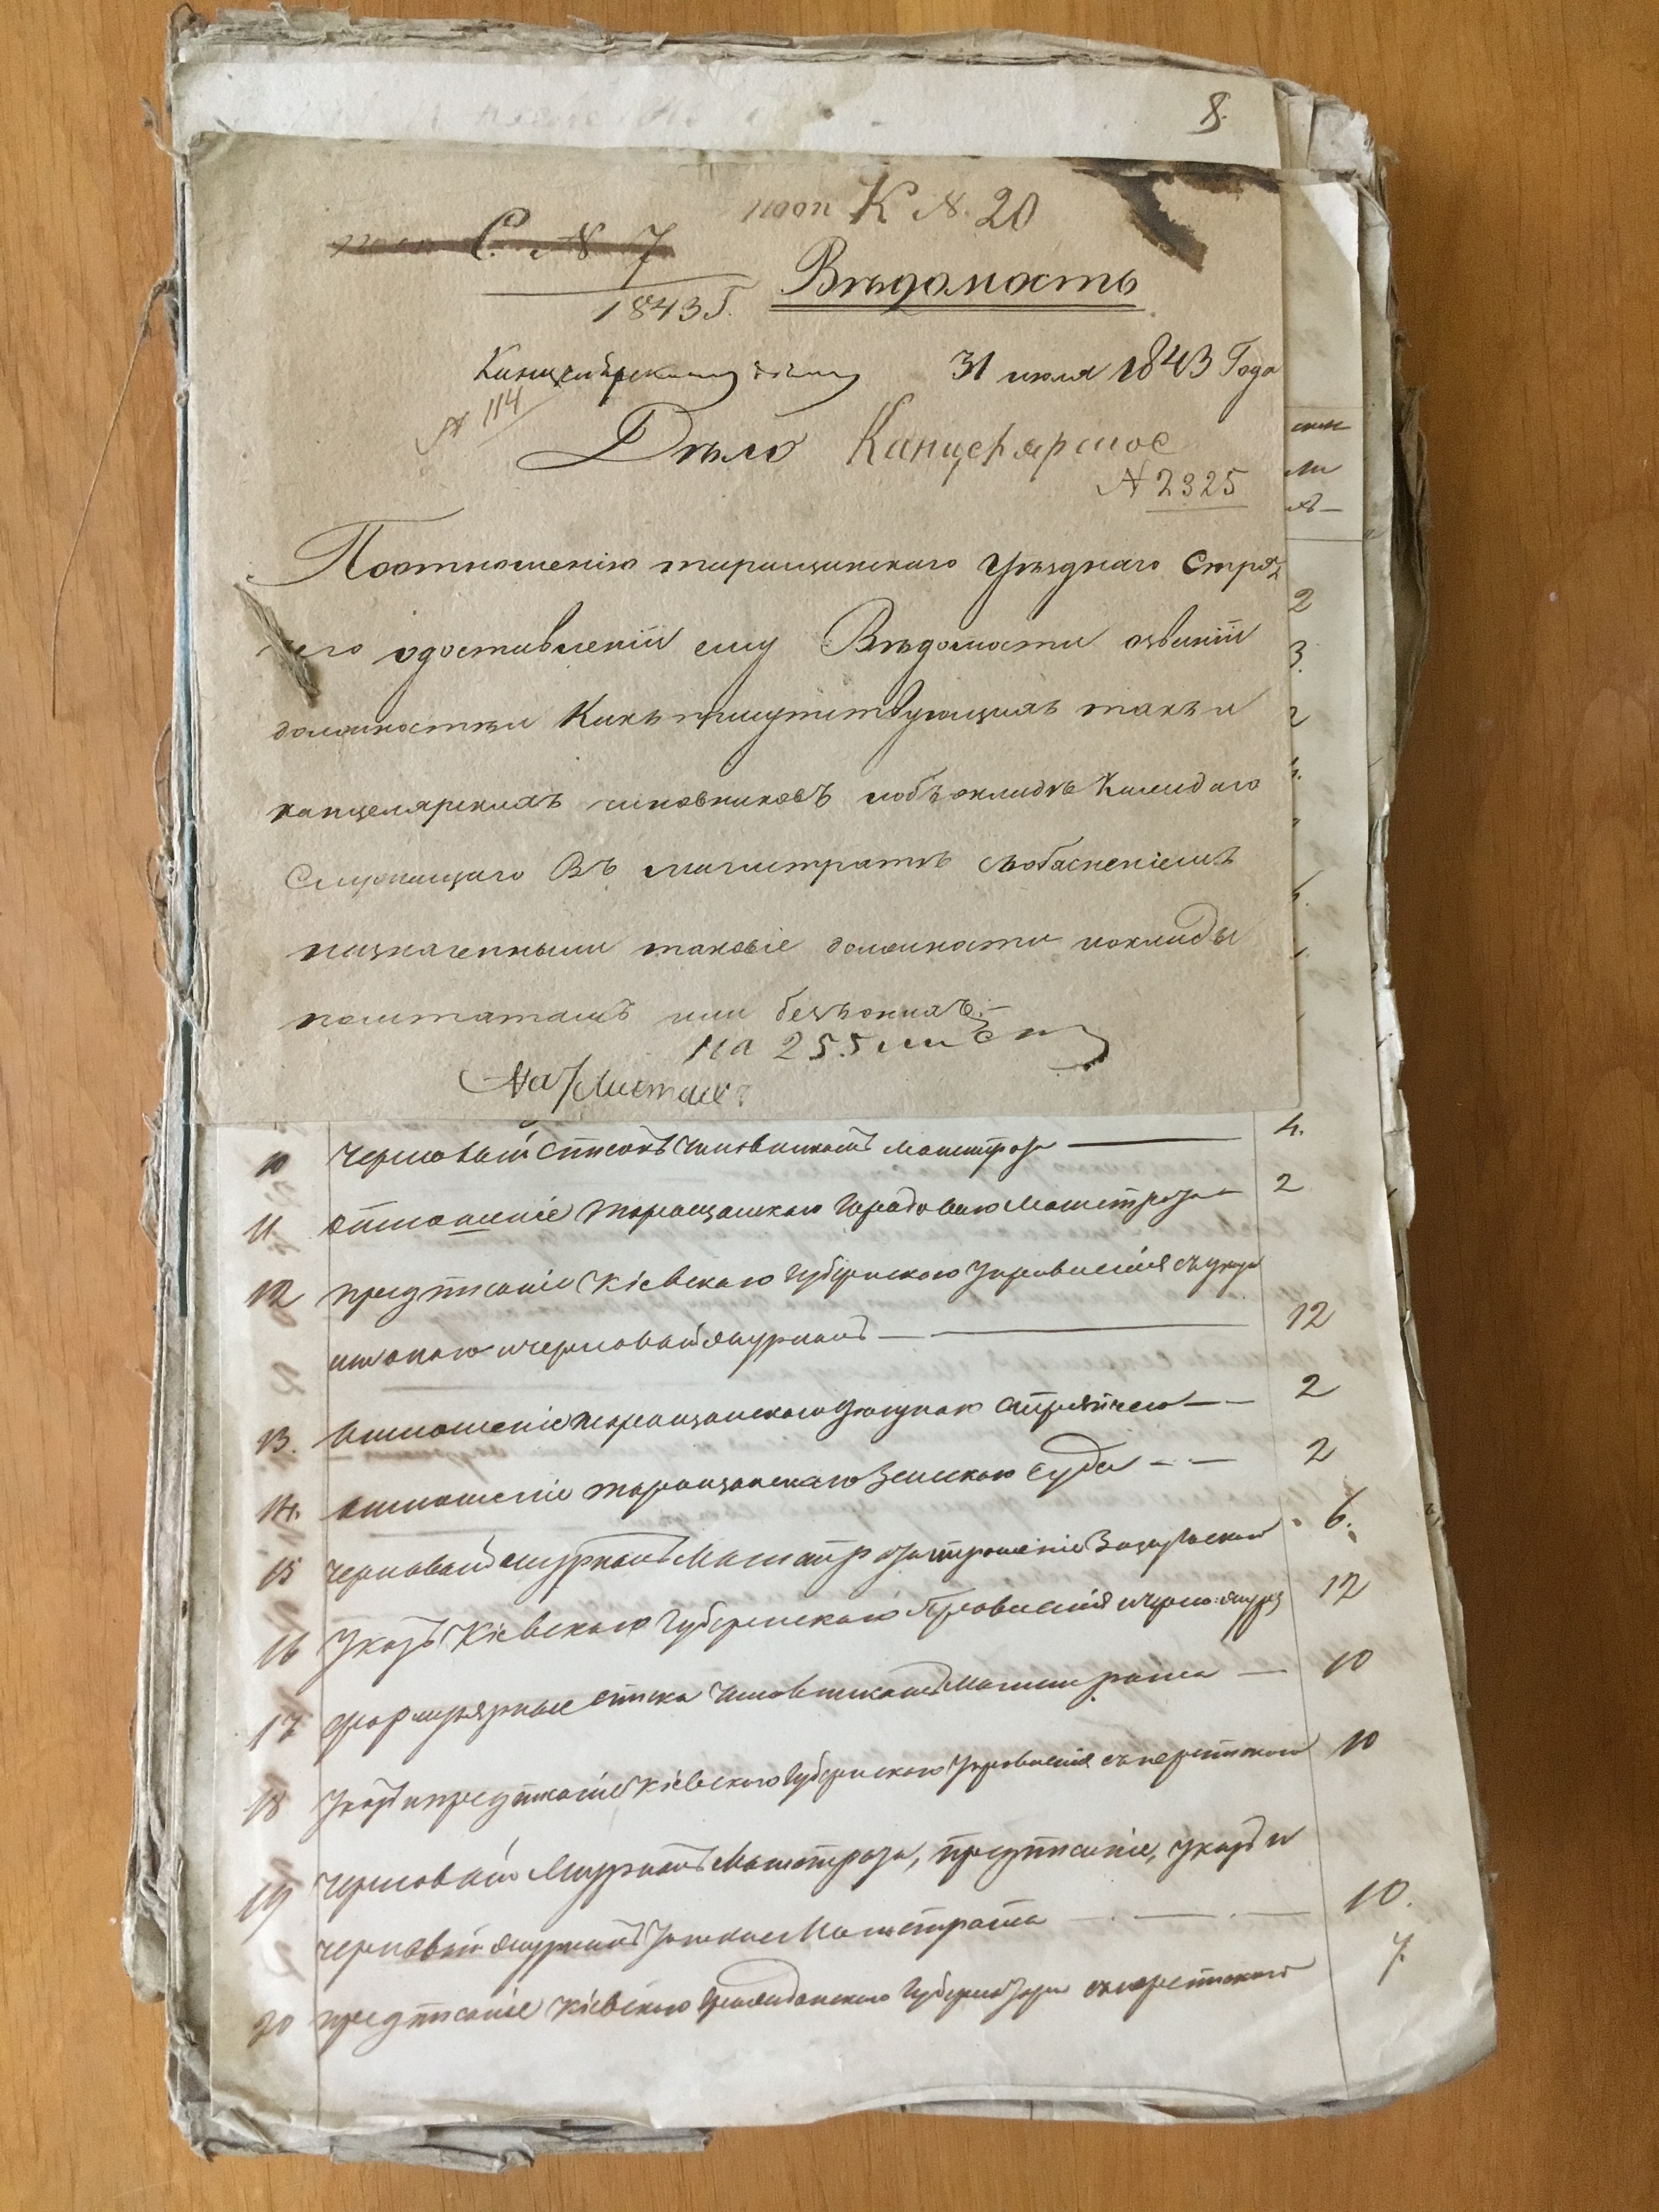 8.
пооп К N. 20
С. N 7
1843 Г. Вѣдомость
31 июля 1843 Года
N 114
Дѣло Канцелярское
N 2325
По отношенію таращанскаго уѣзднаго Стряп
чего одоставленіи ему Вѣдомости озваніи
должностяхъ Какъ присутствующихъ такъ и
канцелярскихъ чиновниковъ и объ окладѣ Каждаго
Служащаго Въ магистратѣ съ объясненіемъ
назначенными таковіе должности и оклады
по штатамъ или безъ онихъ.—
на 255 листу
На листах
10 Черновый Списокъ Чиновникамъ Магистрата — 4.
11. отношеніе Таращанскаго Городоваго Магистрата — 2
12 предписаніе Кіевскаго Губернскаго Управленія съ указа
и черновый журналъ — 12
13. отношеніе Таращанскаго Уѣзднаго Стряпчего — 2
14. отношеніе Таращанскаго Земскаго Суда — 2
15 Черновый журналъ Магистрата 6.
16 Указъ Кіевскаго Губернскаго Правленія и черно: журн 12
17 Формулярные списки Чиновникамъ Магистрата — 10
18 Указъ и предписаніе Кіевскаго Губернскаго Управленія съ перепискою 10
19 Черновый Журналъ Магистрата, предписаніе, Указъ и
черновый журналъ Магистрата — 10.
20 предписаніе Кіевскаго Гражданскаго Губернатора съ перепискою 7.